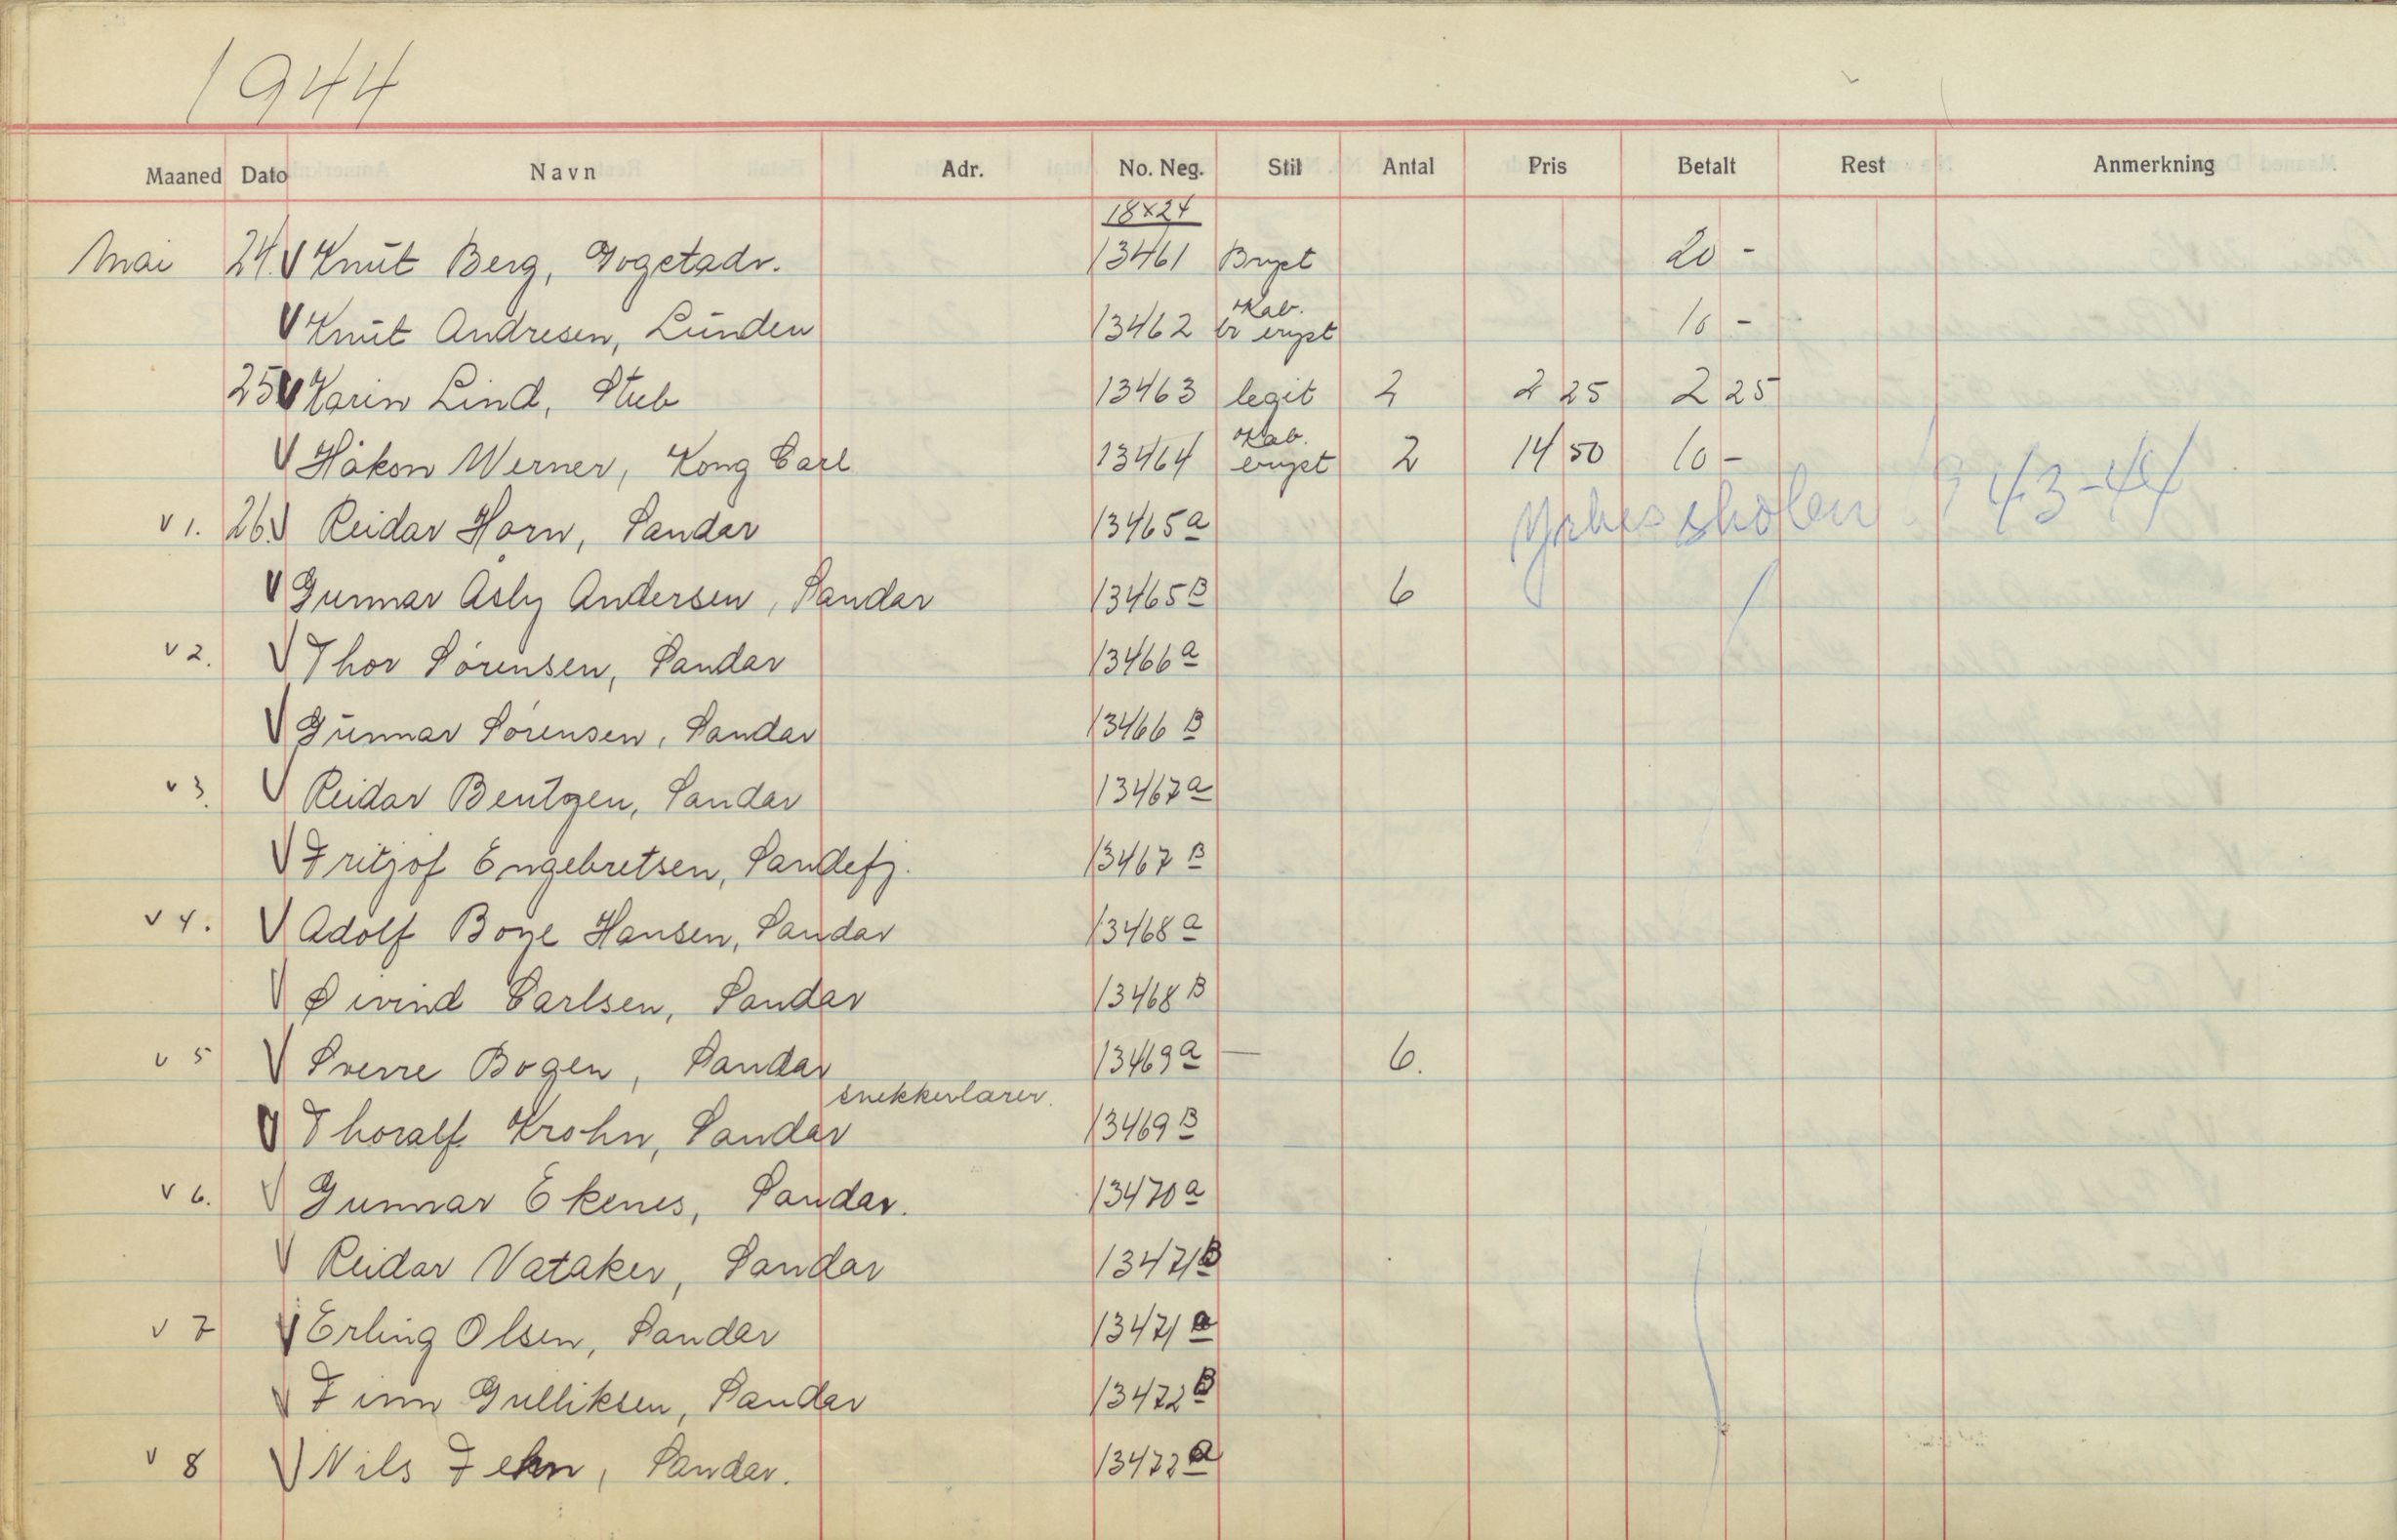 1944
Maaned Dato Navn Adr. No. Neg. Stil Antal Pris Betalt Rest Anmerkning
18x24
Mai 24. V Knut Berg, Gogstadv. 13461 Bryst 20 -
Kab.
V Knut Andresen, Lunden 13462 br eryst 10 -
25 V Karin Lind, Stub 13463 legit 2 2 25 2 25
Kab.
V Håkon Werner, Kong Carl 13464 eryst 2 14 50 10 -
Yrkesskolen 43-44
v 1. 26. V Reidar Horn, Sandar 13465 a
V Gunnar Asly Andersen, Sandar 13465 B 6
v 2. V Thor Sörensen, Sandar 13466 a
V Gunnar Sörensen, Sandar 13466 B
v 3. V Reidar Bentzen, Sandar 13467 a
V Fritjof Engebretsen, Sandefj. 13467 B
v 4. V Adolf Boye Hansen, Sandar 13468 a
V Øivind Carlsen, Sandar 13468 B
v 5 V Sverre Bogen, Sandar 13469 a — 6.
snekkerlærer.
V Thoralf Krohn, Sandar 13469 B
v 6. V Gunnar Ekenes, Sandar. 13470 a
V Reidar Vataker, Sandar 13471 B
v 7 V Erling Olsen, Sandar 13471 a
V Finn Gulliksen, Sandar 13472 B
v 8 V Nils Fehn, Sandar. 13472 a